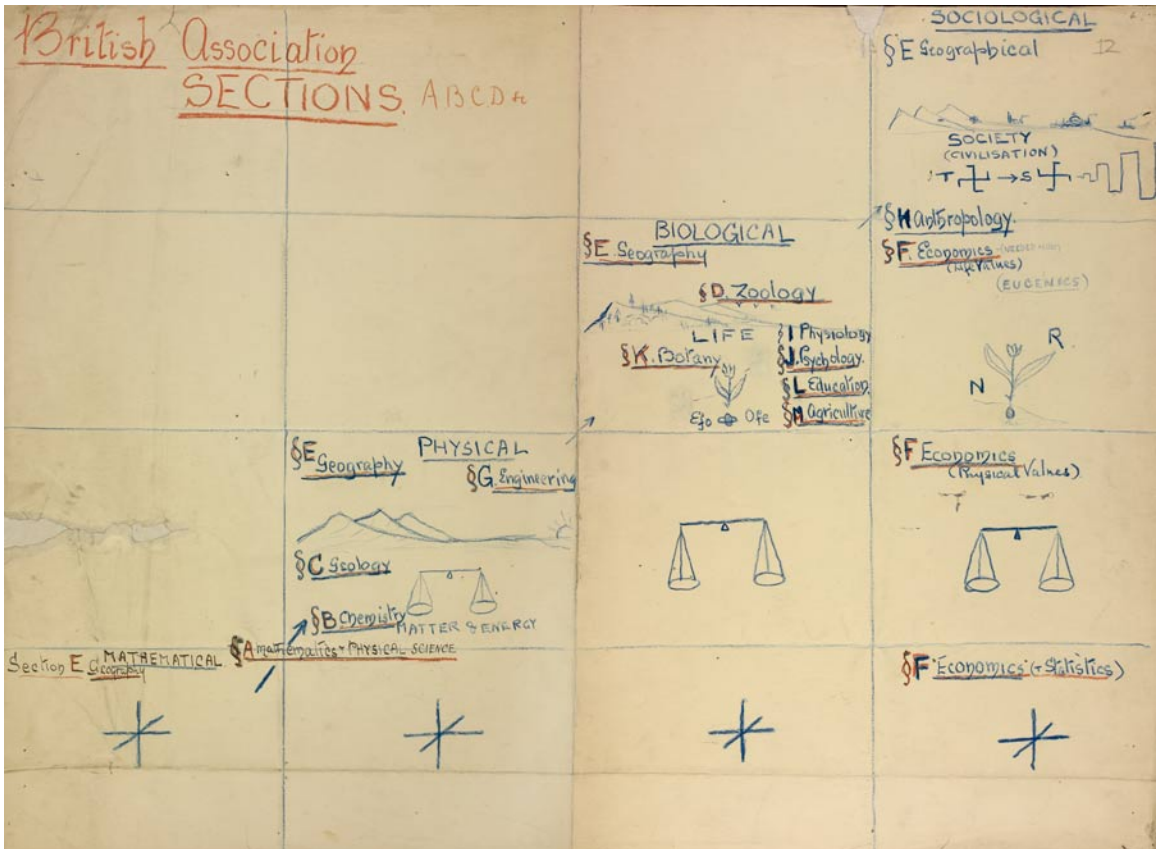 British Association
SECTIONS. A B C D &c
SOCIOLOGICAL
§E Geographical
12
SOCIETY
(CIVILISATION)
T → S
§H Anthropology.
§F. Economics
(Life Values)
(EUGENICS)
N
R
BIOLOGICAL
§E. Geography
§D. Zoology
LIFE
§K. Botany
§I Physiology
§J. Psychology.
§L Education
§M Agriculture
Efo Ofe
PHYSICAL
§E Geography
§G. Engineering
§C Geology
§B Chemistry
MATTER & ENERGY
§F Economics
(Physical Values)
Section E Geography
MATHEMATICAL
§A mathematics + PHYSICAL SCIENCE
§F Economics (+ Statistics)